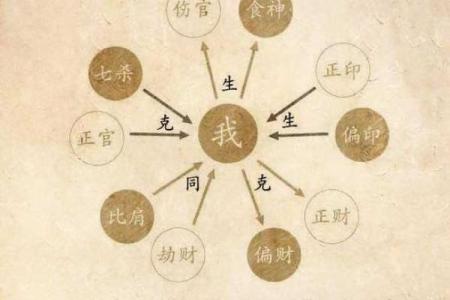 伤官
食神
七杀
生
正印
正官
克
我
生
偏印
比肩
同
克
正财
劫财
偏财